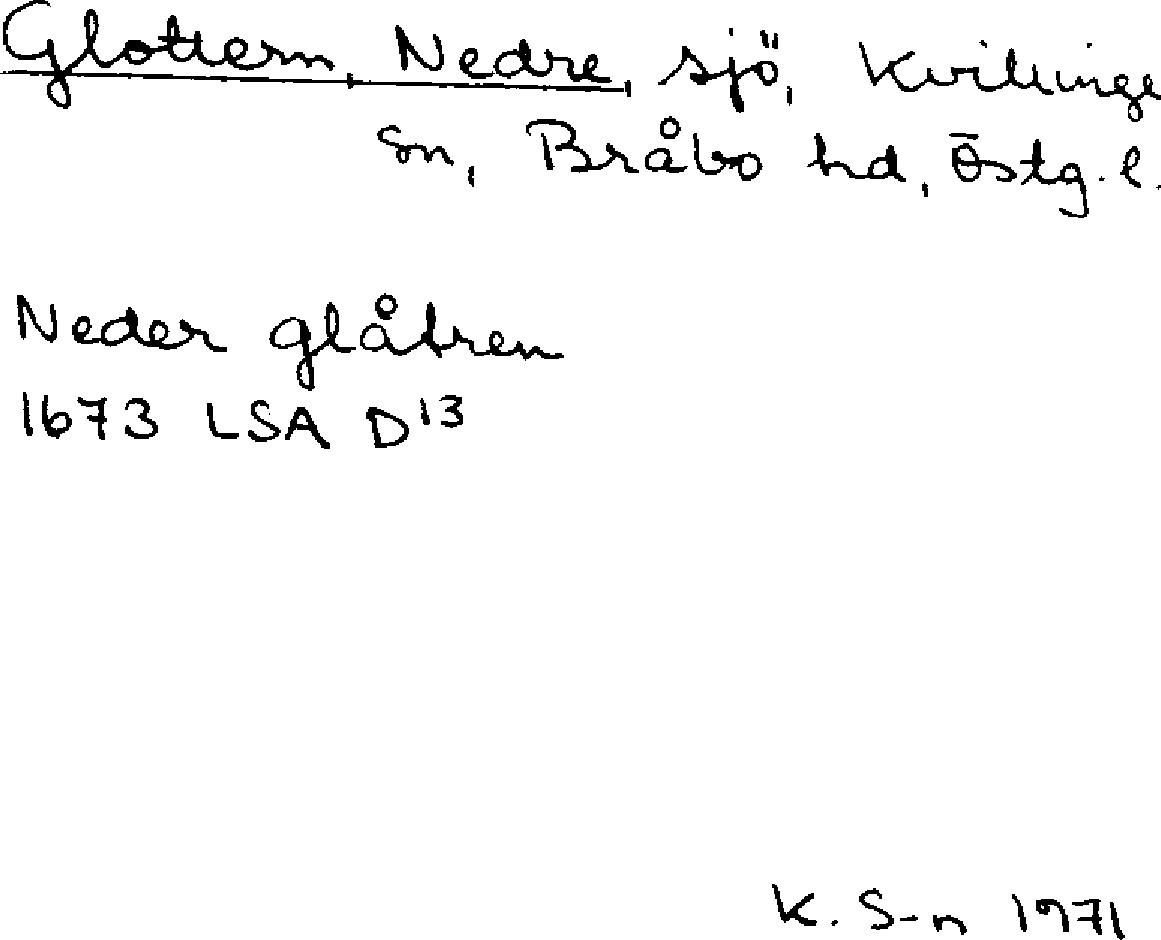 Glottern, Nedre, sjö, Kvillinge
sn, Bråbo hd, Östg. l.
Neder glåtren
1673 LSA D13
K. S-n 1971